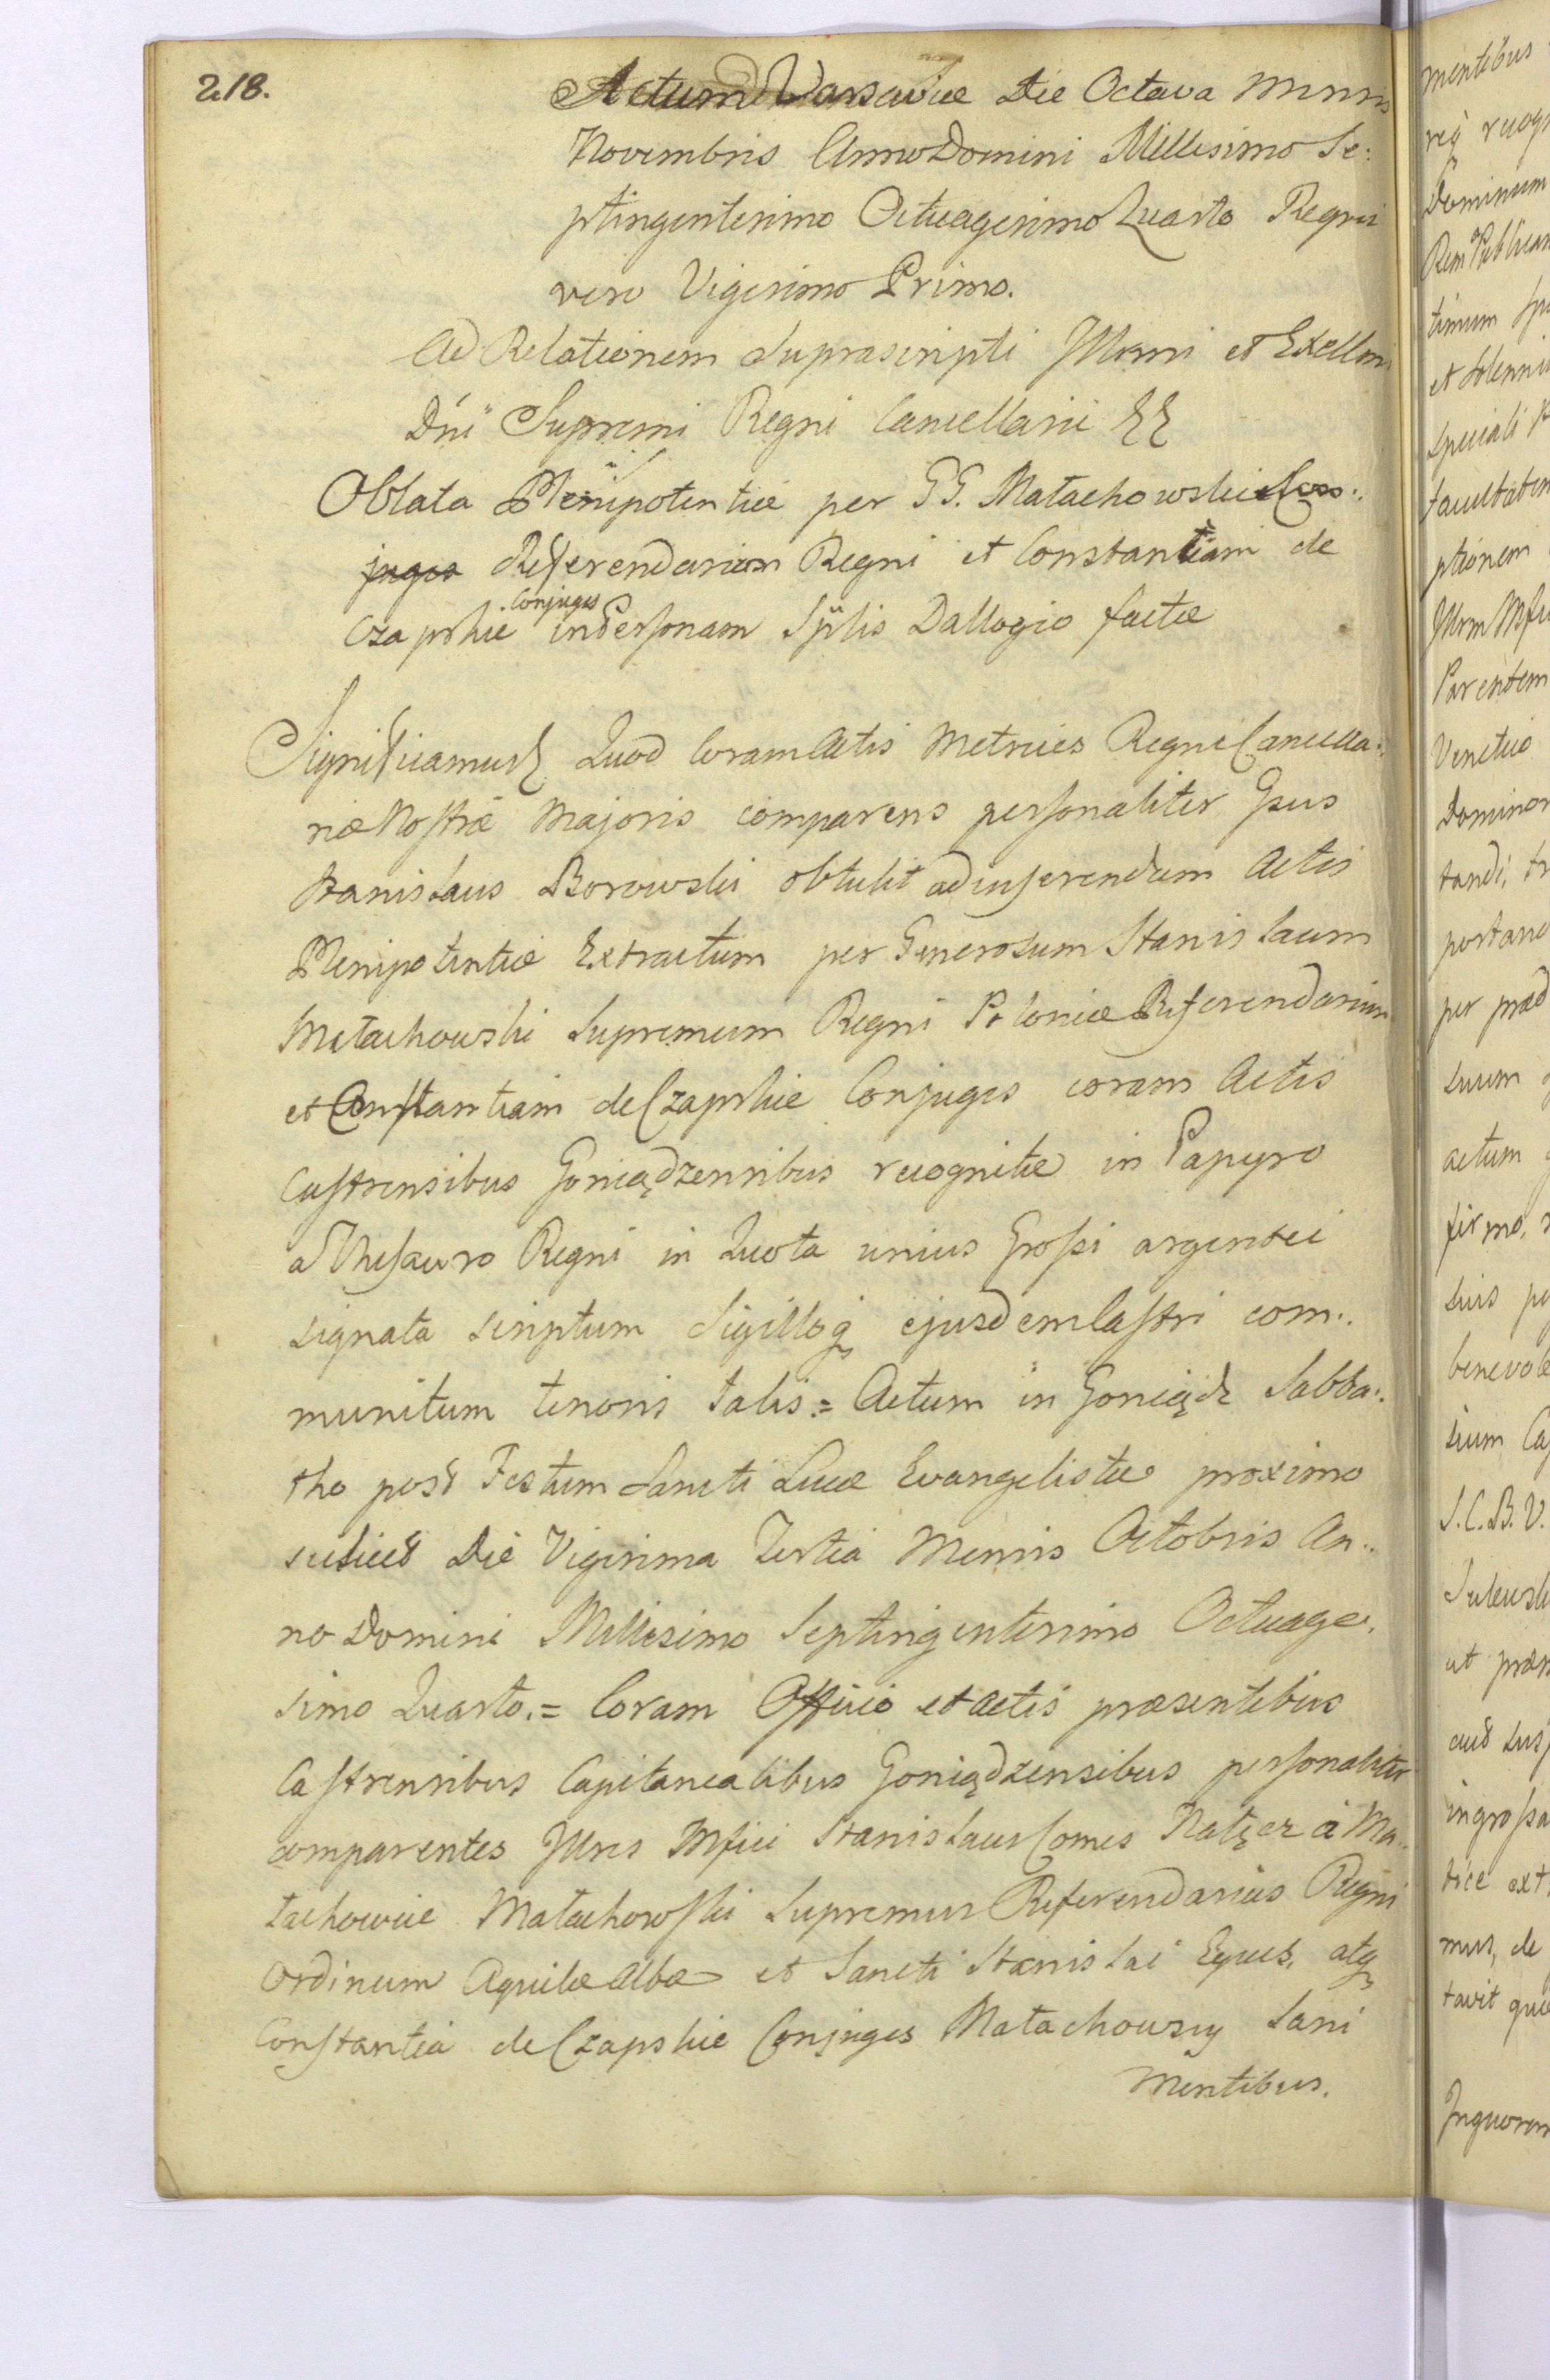 218.
Actum Varsaviæ Die Octava Mensis
Novembris Anno Domini Millesimo Se:
ptingentesimo Octuagesimo Quarto Regni
vero Vigesimo Primo.
Ad Relationem Suprascripti Illmi et Excellmi
Dnï Supremi Regni Cancellarii
Oblata Plenipotentiæ per GG. Małachowskie Con:
juges Referendarium Regni et Constantiam de
Czapskie Conjuges in Personam Splis Dallogio factæ
Significamus Quod Coram Actis Metrices Regni Cancella:
riæ Nostræ Majoris comparens personaliter Gsus
Stanislaus Borowski obtulit ad inserendum Actis
Plenipotentiæ Extractum per Generosum Stanislaum
Małachowski Supremum Regni Poloniæ Referendarium
et Constantiam de Czapskie Conjuges coram Actis
Castrensibus Goniądzensibus recognitæ in Papyro
a Thesauro Regni in Quota unius Grossi argentei
signata scriptum Sigilloq ejusdem Castri com:
munitum tenoris talis.= Actum in Goniądz Sabba:
tho post Festum Sancti Lucæ Evangelistæ proximo
scilicet Die Vigesima Tertia Mensis Octobris An:
no Domini Millesimo Septingentesimo Octuage:
simo Quarto.= Coram Officio et Actis præsentibus
Castrensibus Capitanealibus Goniądzensibus personaliter
comparentes Illres Mfici Stanislaus Comes Nałęcz à Ma:
łachowice Małachowski Supremus Referendarius Regni
Ordinum Aquilæ Albæ et Sancti Stanislai Eques, atq
Constantia de Czapskie Conjuges Małachowscy Sani
Mentibus.
mentibus
req recog
Dominum
Rem Publicam
timum
et Solenni
speciali
facultatem
ptionem
Illrm Mfi
Parentem
Venetiis
Dominor
tandi, tr
portand
per præd
suum
actum
firmo,
suis
benevole
suum Ca
S.C.B.V.
ut præs
aut sus
ingrossa
tice ext
mus, de
tavit quæ
Inquorum